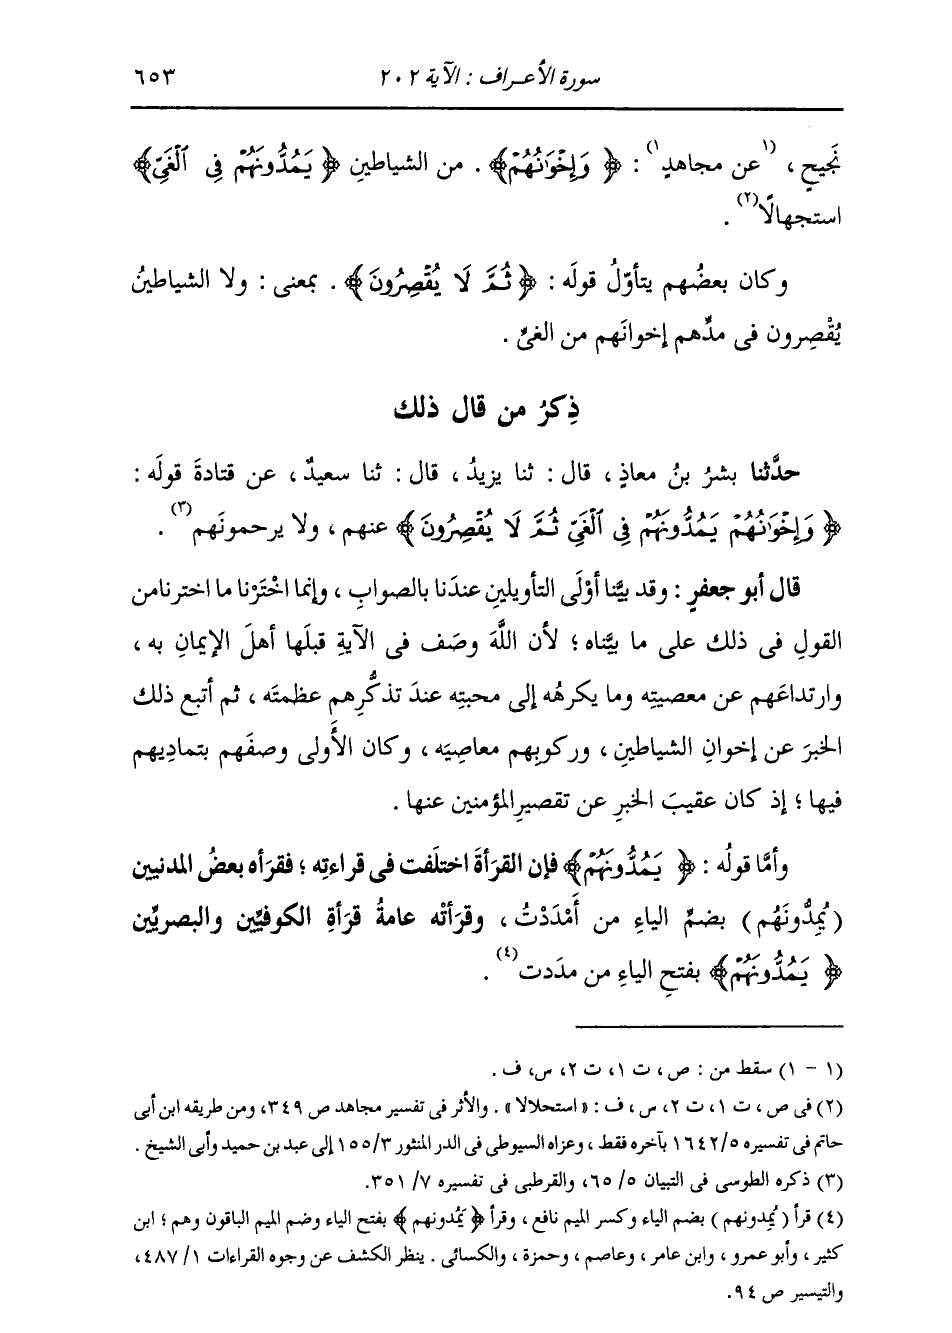 سورة الأعراف : الآية ٢٠٢ ٦٥٣
نَجيحٍ ، (١عن مجاهدٍ١) : ﴿ وَإِخْوَٰنُهُمْ ﴾ . من الشياطينِ ﴿ يَمُدُّونَهُمْ فِى ٱلْغَىِّ ﴾
استجهالًا(٢) .
وكان بعضُهم يتأوّلُ قولَه : ﴿ ثُمَّ لَا يُقْصِرُونَ ﴾ . بمعنى : ولا الشياطينُ
يُقْصِرون فى مدِّهم إخوانَهم من الغىِّ .
ذِكرُ من قال ذلك
حدَّثنا بشرُ بنُ معاذٍ ، قال : ثنا يزيدُ ، قال : ثنا سعيدٌ ، عن قتادةَ قولَه :
﴿ وَإِخْوَٰنُهُمْ يَمُدُّونَهُمْ فِى ٱلْغَىِّ ثُمَّ لَا يُقْصِرُونَ ﴾ عنهم ، ولا يرحمونَهم(٣) .
قال أبو جعفرٍ : وقد بيَّنا أوْلَى التأويلينِ عندَنا بالصوابِ ، وإنما اخْتَرْنا ما اخترنا من
القولِ فى ذلك على ما بيَّناه ؛ لأن اللَّهَ وصَف فى الآيةِ قبلَها أهلَ الإيمانِ به ،
وارتداعَهم عن معصيتِه وما يكرهُه إلى محبتِه عندَ تذكُّرِهم عظمتَه ، ثم أتبع ذلك
الخبرَ عن إخوانِ الشياطينِ ، وركوبِهم معاصِيَه ، وكان الأَولى وصفَهم بتمادِيهم
فيها ؛ إذ كان عقيبَ الخبرِ عن تقصيرِ المؤمنين عنها .
وأمَّا قولُه : ﴿ يَمُدُّونَهُمْ ﴾ فإن القرَأةَ اختلَفت فى قراءتِه ؛ فقرَأه بعضُ المدنيين
( يُمِدُّونَهُم ) بضمِّ الياءِ من أَمْدَدْتُ ، وقرَأتْه عامةُ قرَأةِ الكوفيِّين والبصريِّين
﴿ يَمُدُّونَهُمْ ﴾ بفتحِ الياءِ من مدَدت(٤) .
(١ - ١) سقط من : ص ، ت ١ ، ت ٢ ، س ، ف .
(٢) فى ص ، ت ١ ، ت ٢ ، س ، ف : « استحلالا » . والأثر فى تفسير مجاهد ص ٣٤٩ ، ومن طريقه ابن أبى
حاتم فى تفسيره ١٦٤٢/٥ بآخره فقط ، وعزاه السيوطى فى الدر المنثور ١٥٥/٣ إلى عبد بن حميد وأبى الشيخ .
(٣) ذكره الطوسى فى التبيان ٦٥/٥ ، والقرطبى فى تفسيره ٣٥١/٧.
(٤) قرأ ( يُمِدونهم ) بضم الياء وكسر الميم نافع ، وقرأ ﴿ يَمُدونهم ﴾ بفتح الياء وضم الميم الباقون وهم ؛ ابن
كثير ، وأبو عمرو ، وابن عامر ، وعاصم ، وحمزة ، والكسائى . ينظر الكشف عن وجوه القراءات ٤٨٧/١ ،
والتيسير ص ٩٤.